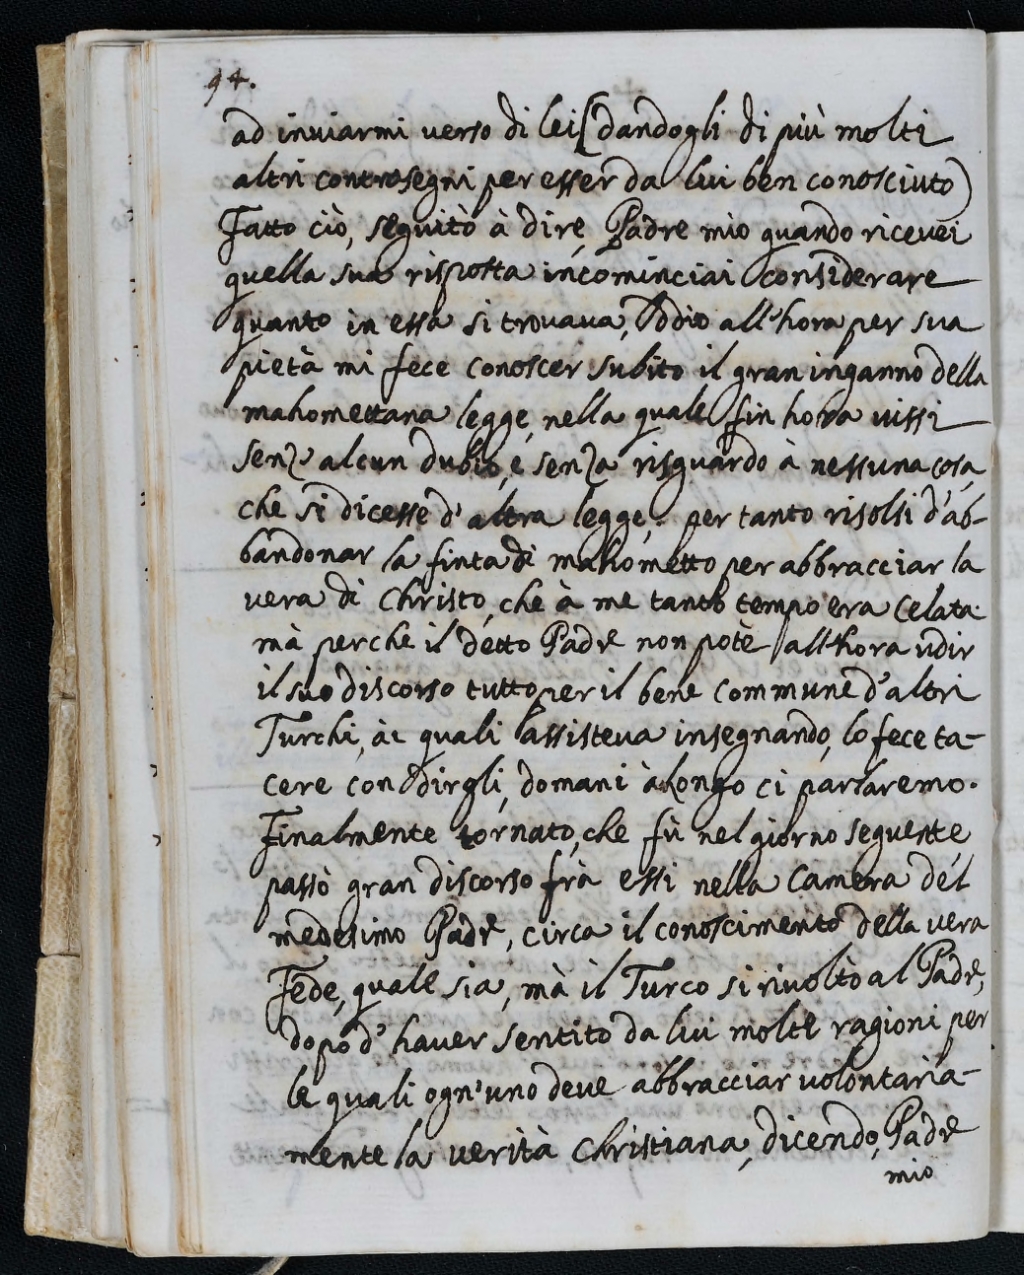 94.
ad inviarmi verso di lei (dandogli di più molti
altri controsegni per esser da lui ben conosciuto)
Fatto ciò, seguitò à dire, Padre mio quando ricevei
quella sua risposta incominciai considerare
quanto in essa si trovava, Iddio all'hora per sua
pietà mi fece conoscer subito il gran inganno della
mahomettana legge, nella quale fin hora vissi
senz'alcun dubio, e senza risguardo à nessuna cosa,
che si dicesse d'altra legge; per tanto risolsi d'ab-
bandonar la finta di mahometto per abbracciar la
vera di Christo, che à me tanto tempo era celata.
mà perche il detto Padre non potè all'hora udir
il suo discorso tutto per il bene commune d'altri
Turchi, ài quali assisteva insegnando, lo fece ta-
cere con dirgli, domani à longo ci parlaremo.
Finalmente tornato, che fù nel giorno seguente
passò gran discorso frà essi nella Camera del
medesimo Padre, circa il conoscimento della vera
Fede, quale sia, mà il Turco si rivoltò al Padre,
dopo d'haver sentito da lui molte ragioni per
le quali ogn'uno deve abbracciar volontaria-
mente la verità Christiana, dicendo, Padre
mio